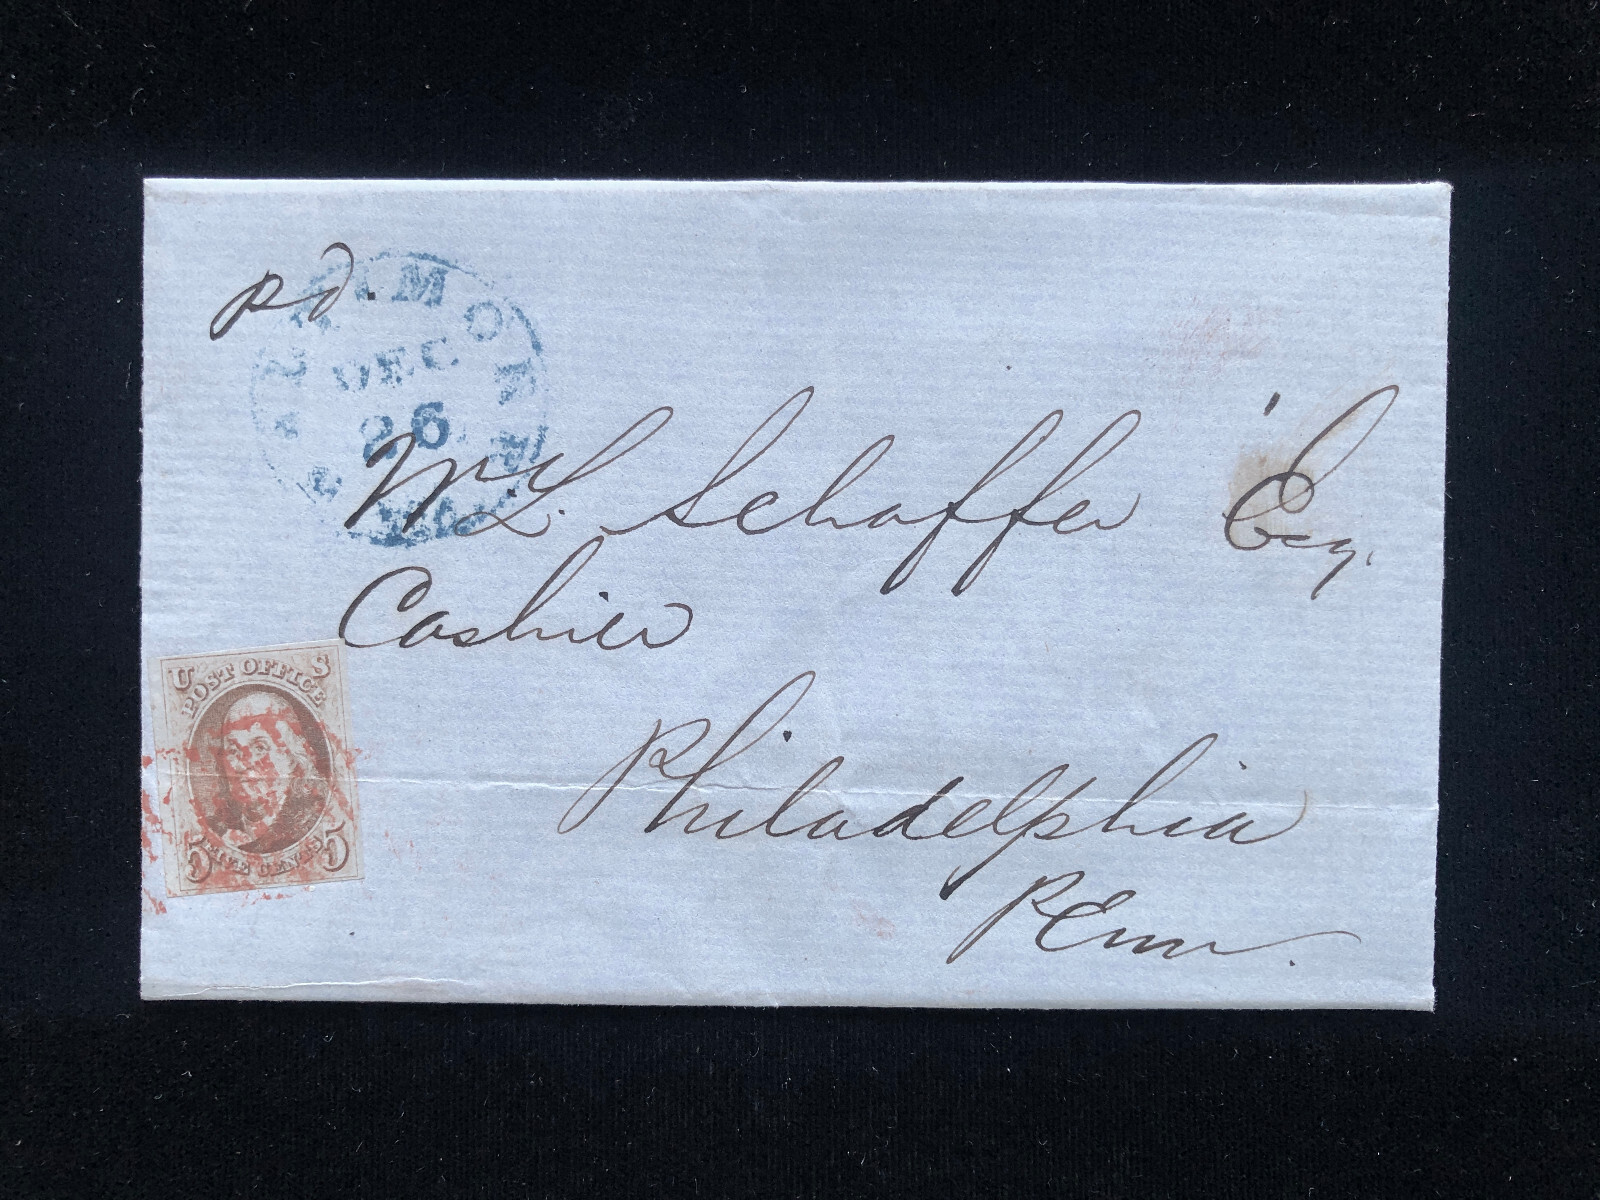 pd.
BALTIMORE
DEC
26
Wm L. Schaffer Esq.
Cashier
Philadelphia
Penn.
U S
POST OFFICE
FIVE CENTS
5 5